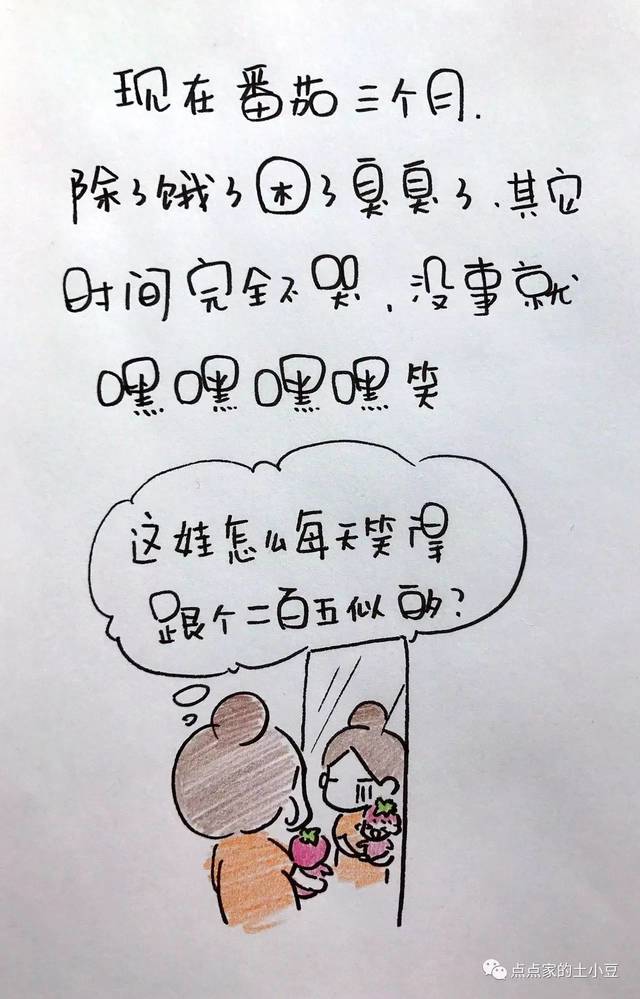 现在番茄三个月.
除了饿了困了臭臭了.其它
时间完全不哭,没事就
嘿嘿嘿嘿笑
这娃怎么每天笑得
跟个二百五似的?
点点家的土小豆